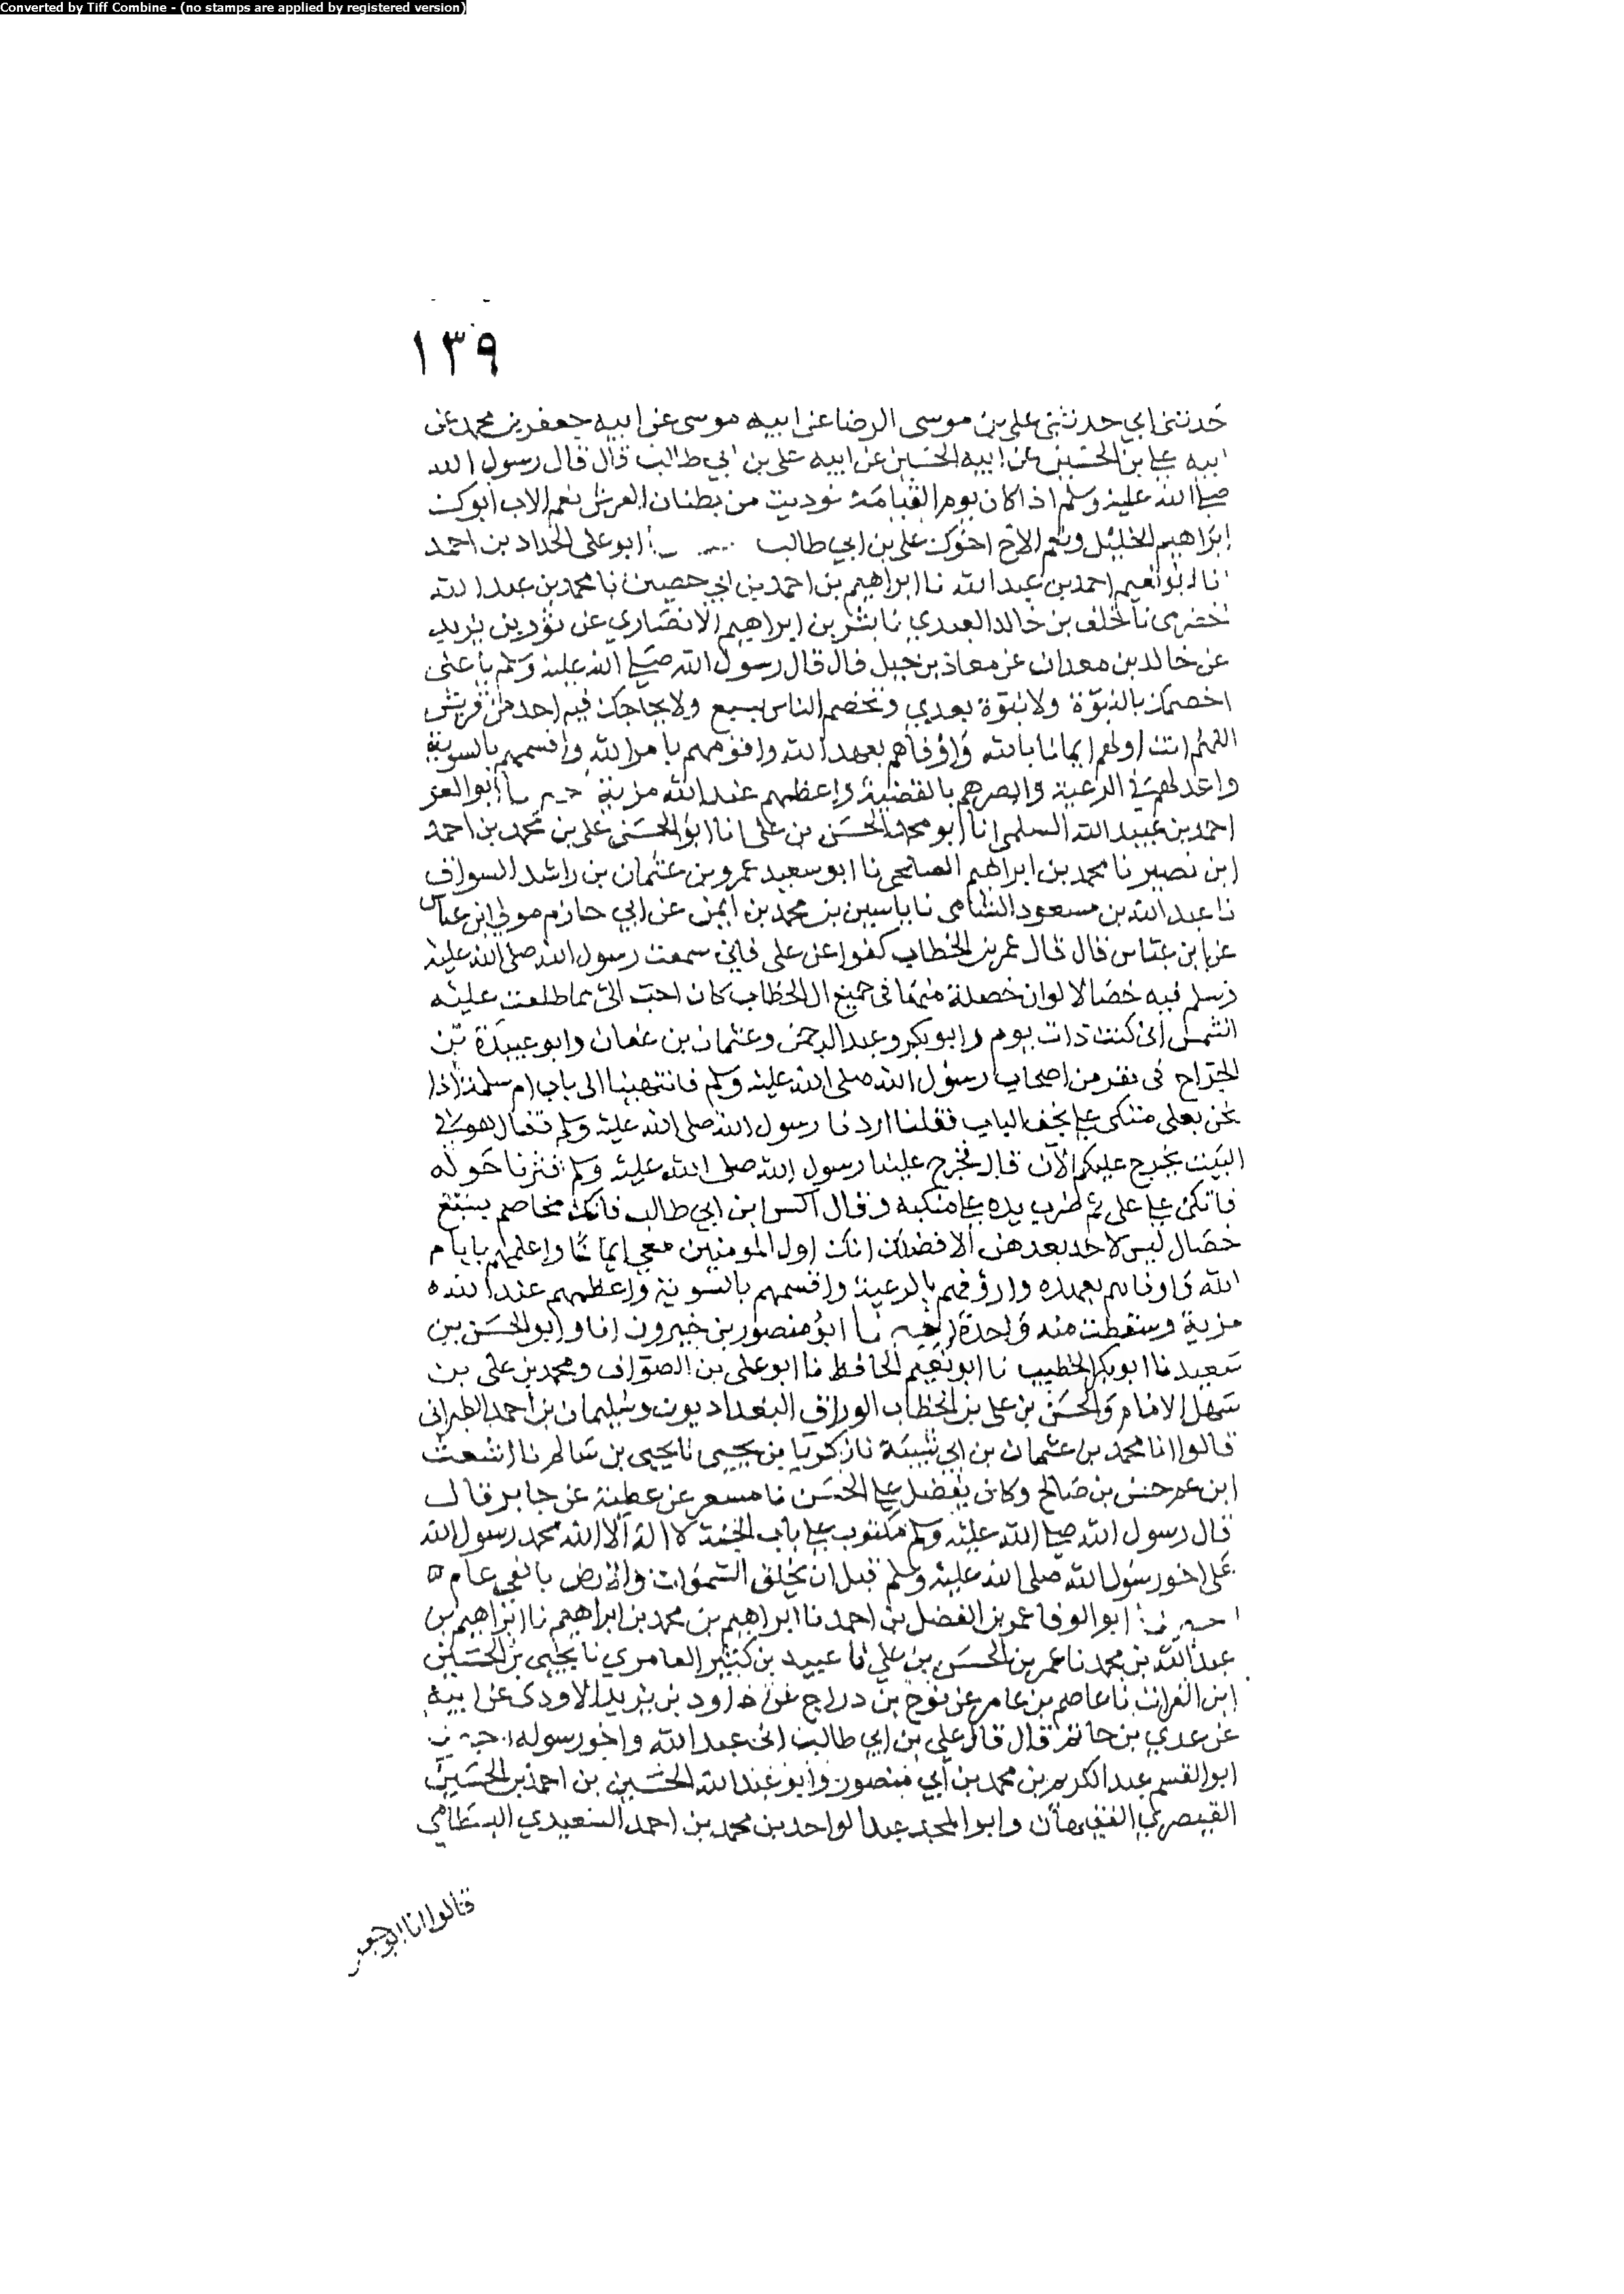 Converted by Tiff Combine - (no stamps are applied by registered version)
١٣٩
حدثني ابي حدثني علي بن موسى الرضا عن ابيه موسى عن ابيه جعفر بن محمد عن
ابيه علي بن الحسين عن ابيه الحسين عن ابيه علي بن ابي طالب قال قال رسول الله
صلى الله عليه وسلم اذا كان يوم القيامة نوديت من بطنان العرش نعم الاب ابوك
ابراهيم الخليل ونعم الاخ اخوك علي بن ابي طالب ابو علي الحداد بن احمد
انا ابو نعيم احمد بن عبد الله نا ابراهيم بن احمد بن ابي حصين نا محمد بن عبد الله
الحضرمي نا خلف بن خالد العبدي نا بشر بن ابراهيم الانصاري عن ثور بن يزيد
عن خالد بن معدان عن معاذ بن جبل قال قال رسول الله صلى الله عليه وسلم يا علي
اخصمك بالنبوة ولا نبوة بعدي وتخصم الناس بسبع ولا يحاجك فيه احد من قريش
اللهم انت اولهم ايمانا بالله واوفاهم بعهد الله واقومهم بامر الله واقسمهم بالسوية
واعدلهم في الرعية وابصرهم بالقضية واعظمهم عند الله مزية ابو العز
احمد بن عبيد الله السلمي انا ابو محمد الحسن بن علي انا ابو الحسن علي بن محمد بن احمد
ابن نصير نا محمد بن ابراهيم الصلحي نا ابو سعيد عمرو بن عثمان بن راشد السواق
نا عبد الله بن مسعود الشامي نا ياسين بن محمد بن ايمن عن ابي حازم مولى ابن عباس
عن ابن عباس قال قال عمر بن الخطاب كفوا عن علي فاني سمعت رسول الله صلى الله عليه
وسلم فيه خصالا لو ان خصلة منها في جميع ال الخطاب كان احب الي مما طلعت عليه
الشمس اني كنت ذات يوم وابو بكر وعبد الرحمن وعثمان بن عفان وابو عبيدة بن
الجراح في نفر من اصحاب رسول الله صلى الله عليه وسلم فانتهينا الى باب ام سلمة اذا
نحن بعلي متكي على نجف الباب فقلنا اردنا رسول الله صلى الله عليه وسلم فقال هو في
البيت يخرج عليكم الآن قال فخرج علينا رسول الله صلى الله عليه وسلم فثرنا حوله
فاتكى على علي ثم ضرب يده على منكبه وقال اكس ابن ابي طالب فانك مخاصم بسبع
خصال ليس لاحد بعدهن الا فضلك انك اول المومنين معي ايمانا واعلمهم بايام
الله واوفاهم بعهده وارؤفهم بالرعية واقسمهم بالسوية واعظمهم عند الله ه
مزية وسقطت منه واحدة ابو منصور بن خيرون انا وابو الحسن بن
سعيد نا ابو بكر الخطيب نا ابو نعيم الحافظ نا ابو علي بن الصواف ومحمد بن علي بن
سهل الامام والحسن بن علي بن الخطاب الوراق البغداديون وسليمان بن احمد الطبراني
قالوا انا محمد بن عثمان بن ابي شيبة نا زكريا بن يحيى نا يحيى بن سالم نا اشعث
ابن عم حسن بن صالح وكان يفضل على الحسن نا مسعر عن عطية عن جابر قال
قال رسول الله صلى الله عليه وسلم مكتوب على باب الجنة لا اله الا الله محمد رسول الله
علي اخو رسول الله صلى الله عليه وسلم قبل ان يخلق السموات والارض بالفي عام ه
ابو الوفا عمر بن الفضل بن احمد نا ابراهيم بن محمد بن ابراهيم نا ابراهيم بن
عبد الله بن محمد نا عمر بن الحسن بن علي نا عبيد بن كثير العامري نا يحيى بن الحسين
ابن الفرات نا عاصم بن عامر عن نوح بن دراج عن داود بن يزيد الاودي عن ابيه
عن عدي بن حاتم قال قال علي بن ابي طالب اني عبد الله واخو رسوله
ابو القسم عبد الكريم بن محمد بن ابي منصور وابو عبد الله الحسين بن احمد بن الحسين
القيصري الفقيهان وابو المجد عبد الواحد بن محمد بن احمد السعيدي البسطامي
قالوا انا ابو جعفر